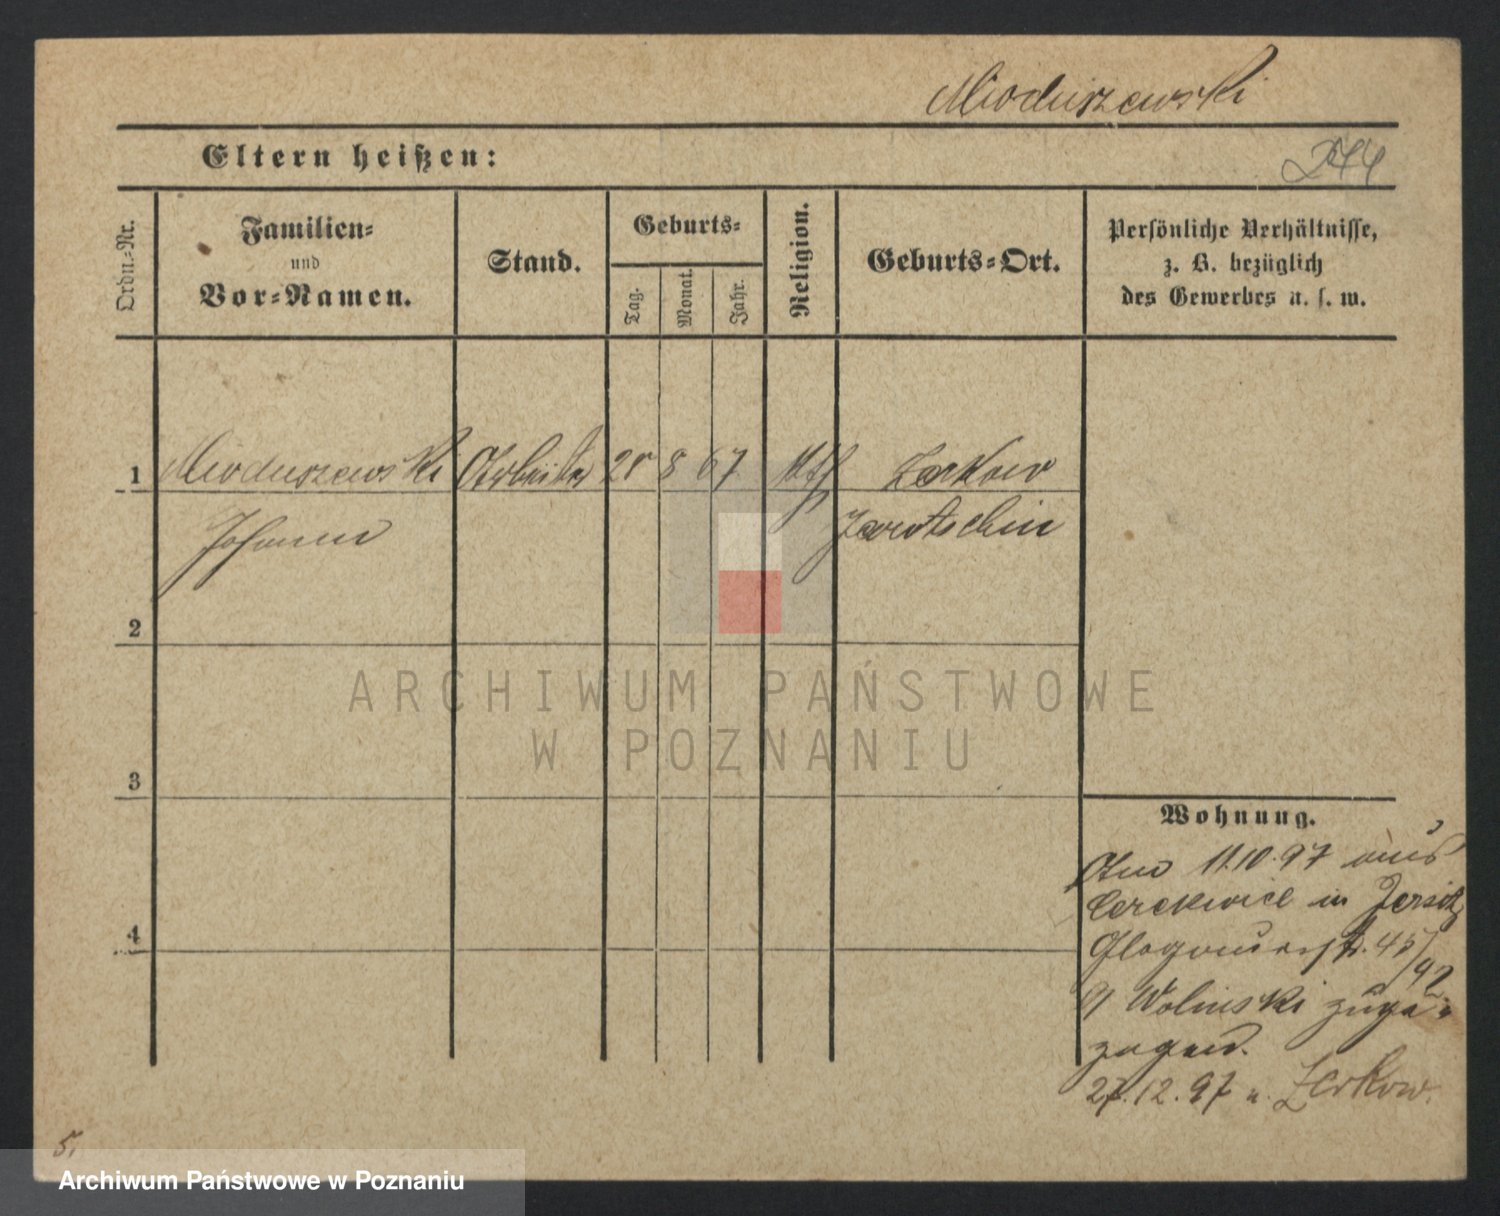 Mioduszewski
Eltern heißen:
Ordn.-Nr.
Familien-
und
Vor-Namen.
Stand.
Geburts-
Tag.
Monat.
Jahr.
Religion.
Geburts-Ort.
Persönliche Verhältnisse,
z. B. bezüglich
des Gewerbes u. s. w.
1 Mioduszewski Arbeiter 8 67 kth Zerkow
Johann Jarotschin
2
3
4
ARCHIWUM PAŃSTWOWE
W POZNANIU
Wohnung.
Am 11.10.97 aus
Cerekwice in Jersitz
Glogauerstr. 45/92
b/ Wolinski zuge-
zogen.
27.12.97 n. Zerkow.
5.
Archiwum Państwowe w Poznaniu